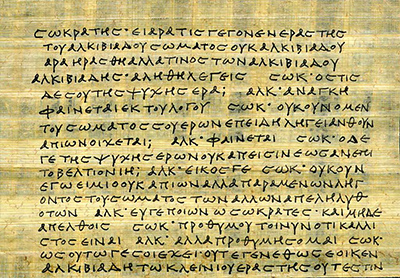 ϹΩΚΡΑΤΗϹ· ΕΙ ΑΡΑ ΤΙϹ ΓΕΓΟΝΕΝ ΕΡΑϹΤΗϹ
ΤΟΥ ΑΛΚΙΒΙΑΔΟΥ ϹΩΜΑΤΟϹ ΟΥΚ ΑΛΚΙΒΙΑΔΟΥ
ΑΡΑ ΗΡΑϹΘΗ ΑΛΛΑ ΤΙΝΟϹ ΤΩΝ ΑΛΚΙΒΙΑΔΟΥ
ΑΛΚΙΒΙΑΔΗϹ· ΑΛΗΘΗ ΛΕΓΕΙϹ ϹΩΚ· ΟϹΤΙϹ
ΔΕ ϹΟΥ ΤΗϹ ΨΥΧΗϹ ΕΡΑ; ΑΛΚ· ΑΝΑΓΚΗ
ΦΑΙΝΕΤΑΙ ΕΚ ΤΟΥ ΛΟΓΟΥ ϹΩΚ· ΟΥΚΟΥΝ Ο ΜΕΝ
ΤΟΥ ϹΩΜΑΤΟϹ ϹΟΥ ΕΡΩΝ ΕΠΕΙΔΗ ΛΗΓΕΙ ΑΝΘΟΥΝ
ΑΠΙΩΝ ΟΙΧΕΤΑΙ; ΑΛΚ· ΦΑΙΝΕΤΑΙ ϹΩΚ· Ο ΔΕ
ΓΕ ΤΗϹ ΨΥΧΗϹ ΕΡΩΝ ΟΥΚ ΑΠΕΙϹΙΝ ΕΩϹ ΑΝ ΕΠΙ
ΤΟ ΒΕΛΤΙΟΝ ΙΗ; ΑΛΚ· ΕΙΚΟϹ ΓΕ ϹΩΚ· ΟΥΚΟΥΝ
ΕΓΩ ΕΙΜΙ Ο ΟΥΚ ΑΠΙΩΝ ΑΛΛΑ ΠΑΡΑΜΕΝΩΝ ΛΗΓ
ΟΝΤΟϹ ΤΟΥ ϹΩΜΑΤΟϹ ΤΩΝ ΑΛΛΩΝ ΑΠΕΛΗΛΥΘ
ΟΤΩΝ ΑΛΚ· ΕΥ ΓΕ ΠΟΙΩΝ Ω ϹΩΚΡΑΤΕϹ· ΚΑΙ ΜΗΔΕ
ΑΠΕΛΘΟΙϹ ϹΩΚ· ΠΡΟΘΥΜΟΥ ΤΟΙΝΥΝ ΟΤΙ ΚΑΛΛΙ
ϹΤΟϹ ΕΙΝΑΙ ΑΛΚ· ΑΛΛΑ ΠΡΟΘΥΜΗϹΟΜΑΙ ϹΩΚ·
ΩϹ ΟΥΤΩ ΓΕ ϹΟΙ ΕΧΕΙ ΟΥΤ ΕΓΕΝΕΘ ΩϹ ΕΟΙΚΕΝ
ΑΛΚΙΒΙΑΔΗ ΤΩ ΚΛΕΙΝΙΟΥ ΕΡΑϹΤΗϹ ΟΥΤ ΕϹΤΙΝ